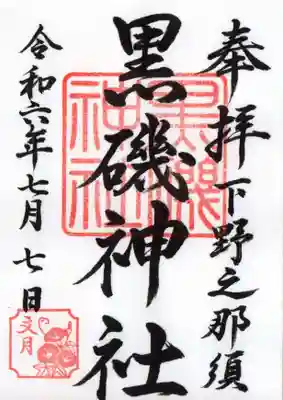 奉拝 下野之那須
黒磯神社
令和六年七月七日
黒磯神社
文月